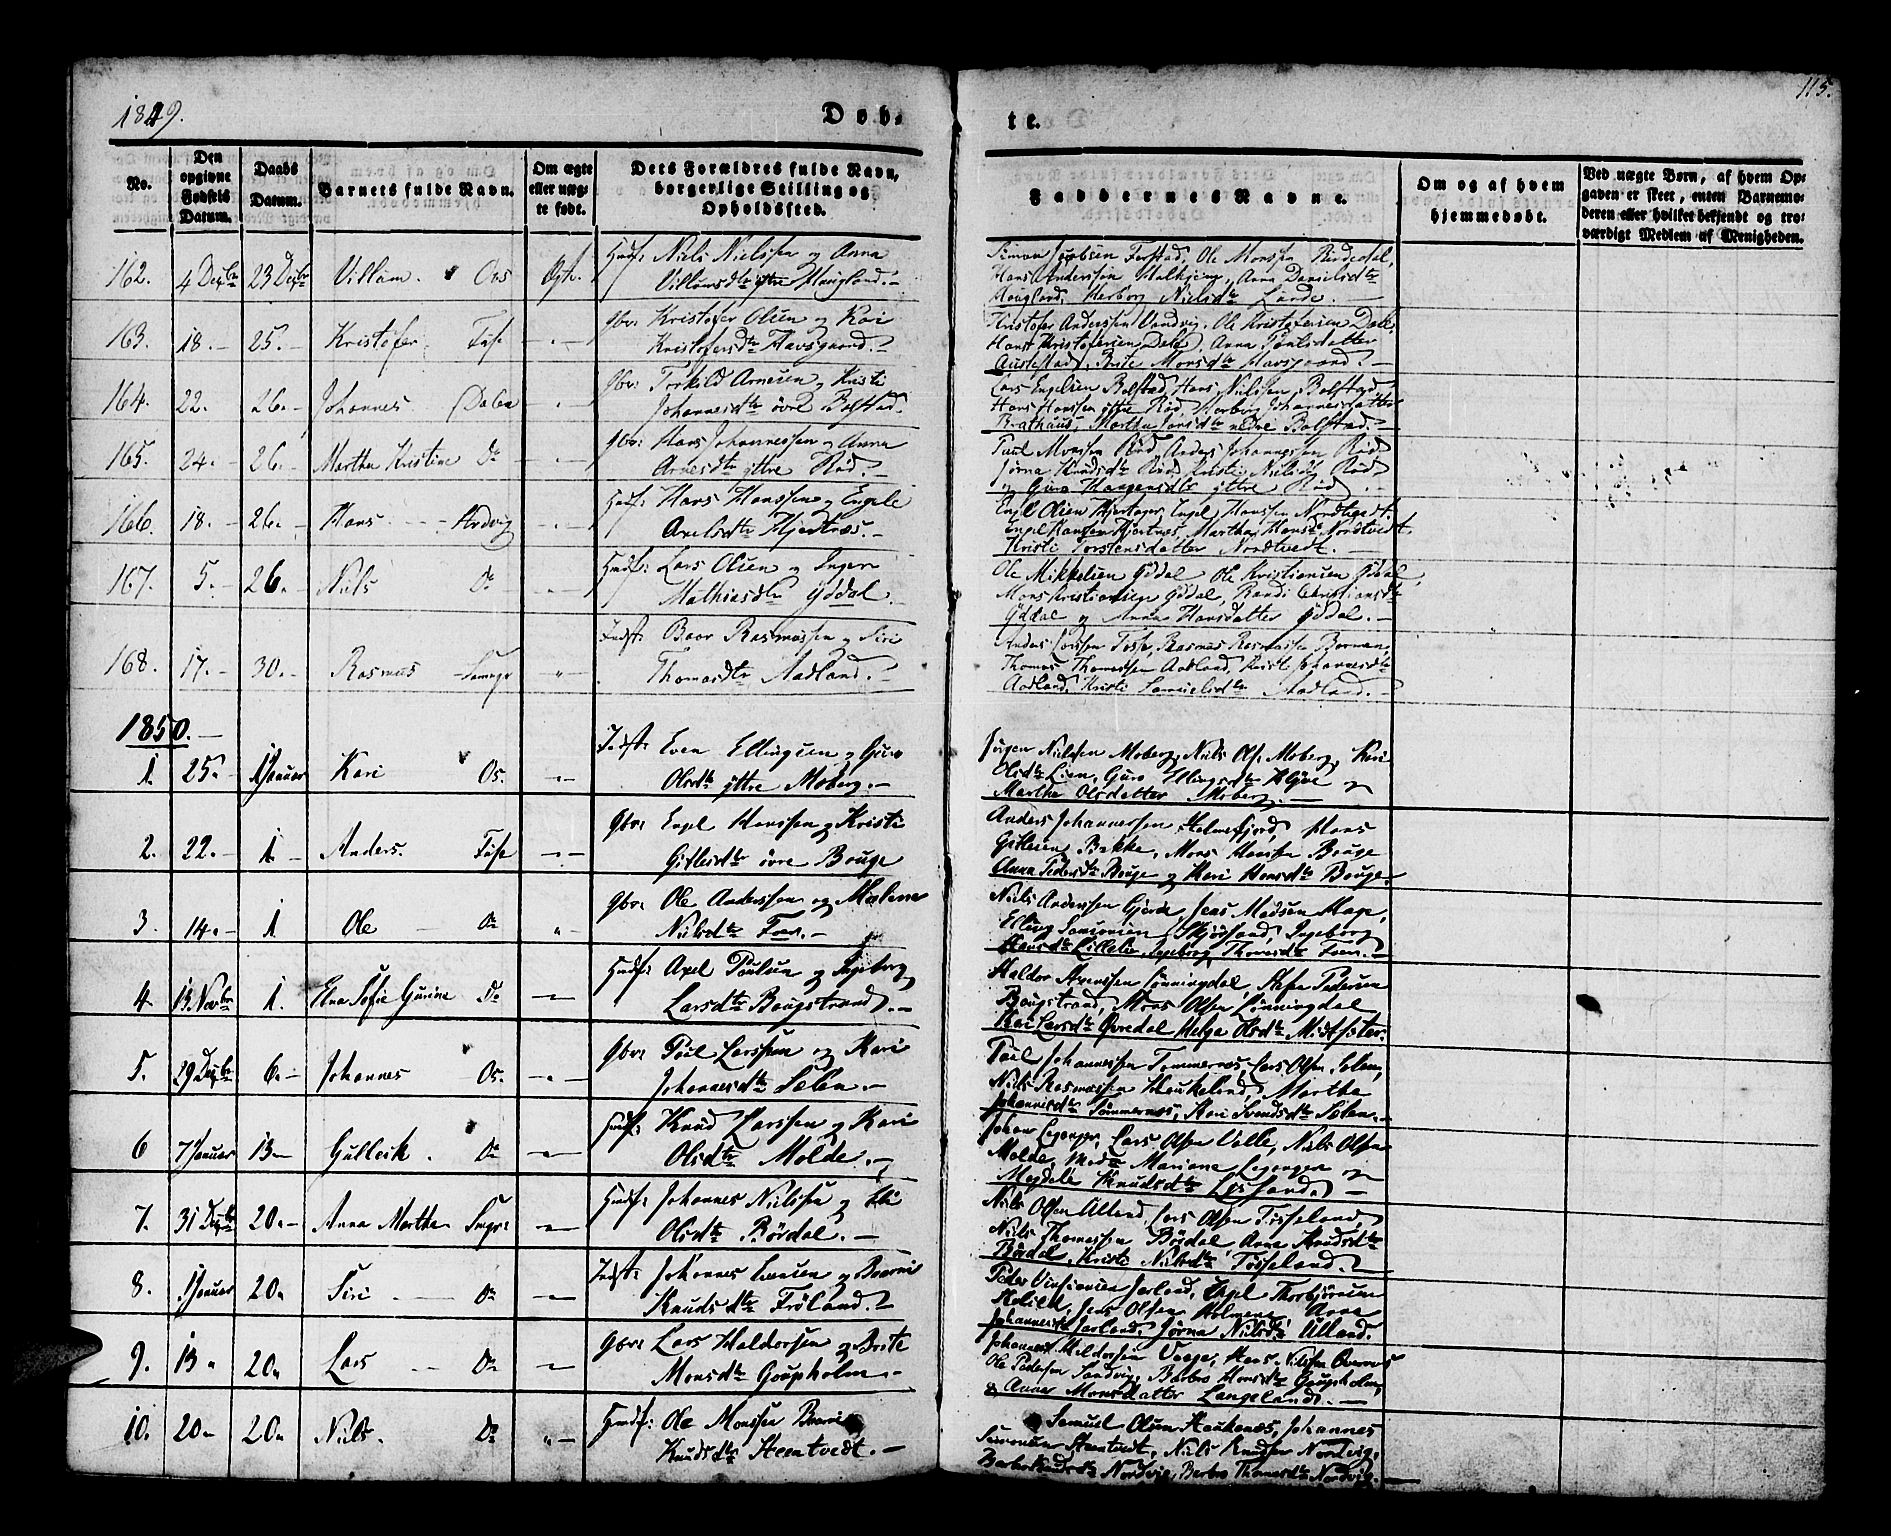 1849.
Døb-
te.
115.
No.
Den
opgivne
Fødsels
Datum.
Daabs
Datum.
Barnets fulde Navn.
Om ægte
eller uæg-
te født.
Dets Forældres fulde Navn,
borgerlige Stilling og
Opholdssted.
Faddernes Navne.
Om og af hvem
hjemmedøbt.
Ved uægte Børn, af hvem Op-
gaven er skeet, enten Barnemo-
deren eller hvilket bekjendt og tro-
værdigt Medlem af Menigheden.
162. 4 Decbr 23 Decbr Villum. Os Ægte. Husf: Niels Nielssen og Anna
Villumsdtr ytre Haugland.
Hans Anderssen Anna Danielsdtr
Haugland, Herborg Nielsdtr
163. 18. 25. Kristofer. Fuse Gbr: Kristofer Olsen og Kari
Kristofersdtr Havsgaard.
Kristofer Anderssen Vendvig, Ole Kristofersen Dale,
Hans Kristofersen Dale, Anna
Austestad, Brite Monsdtr Havsgaard.
164. 22. 26. Johannes. Dalen Gbr: Torkild Arnesen og Kristi
Johannesdtr øvre Bolstad.
Lars Engelsen Bolstad, Hans Nielsen Bolstad,
Hans Hanssen ytre Rød, Herborg Johannesdatter
Martha nedre Bolstad.
165. 24. 26. Martha Kristine Do Gbr: Hans Johannessen og Anna
Arnesdtr yttre Rød.
Paul Monssen Rød, Anders Johannessen Rød
Jørna Knudsdtr Rød, Kristi Nielsdtr Rød
og Guro Haagensdtr yttre Rød.
166. 18. 26. Hans. Andvig Husf: Hans Hanssen og Engele
Axelsdtr Hjertnæs.
Engel Hanssen Nordtvedt.
Engel Hanssen Hjertnæs, Martha Hansdtr Nordtvedt
Kristi Torstensdatter Nordtvedt.
167. 5. 26. Niels Do Husf: Lars Olsen og Inger
Mathiasdtr Yddal.
Ole Mikkelsen Yddal, Ole Kristiansen Yddal,
Mons Kristiansen Yddal, Randi Christiansdtr
Yddal og Anna Hansdatter Yddal.
168. 17. 30. Rasmus Samnge Indst: Baar Rasmussen og Siri
Thomasdtr Aadland.
Anders Larssen Rasmus Rasmussen
Thomas Thomassen Aadland, Johannesdtr
Aadland, Kristi Samuelsdtr Aadland.
1850.
1. 25. 1 Januar Kari Os. Indst: Even Ellingsen og Guro
Olsdtr yttre Moberg.
Jørgen Nielssen Moberg, Niels Ols. Moberg, Kari
Olsdtr Lien, Guro Ellingsdtr og
Martha Olsdatter Moberg.
2. 22. 1. Anders. Fuse Gbr: Engel Hanssen og Kristi
Gitlesdtr øvre Bouge
Anders Johannessen Holmefjord, Hans
Gitlesen Bakke, Mons Hanssen Bouge
Anna Pedersdtr Bouge og Kari Hansdtr Bouge.
3. 14. 1 Ole Do Gbr: Ole Anderssen og Malene
Nielsdtr
Niels Anderssen Gjerde, Jens Madsen Hage,
Elling Ingeborg
Hansdtr Ingeborg Thomasdtr
4. 13 Novbr 1. Elna Sofie Gurine Do Husf: Axel Paulsen og Ingeborg
Larsdtr Bougstrand.
Haldor Lønningdal, Peder
Bougstrand, Mons Olsen Lønningdal
Kari Larsdtr Øvredal Helga Olsdtr Midtsæter.
5. 29 Decbr 6. Johannes Os. Gbr: Paul Larssen og Kari
Johannesdtr Sælen.
Paul Johannessen Lars Olsen Sælen,
Niels Rasmussen Haukeland, Martha
Johannesdtr Kari Svendsdtr Sælen.
6 7 Januar 13 Gulleik. Do Husf: Knud Larssen og Kari
Olsdtr Molde.
Johan Leganger, Lars Olsen Valle, Niels Olsen
Molde, Mad. Mariane Leganger og
Magdele Knudsdtr
7. 31 Decbr 20. Anna Martha Samgr: Husf: Johannes Nielssen og
Olsdtr Børdal.
Niels Olsen Ulland, Lars Olsen Tøsseland,
Niels Thomassen Børdal, Anna Knudsdtr
Børdal, Kristi Nielsdtr Tøsseland.
8. 1 Januar 20. Siri Do Indst: Johannes Evensen og Baarni
Knudsdtr Frøland.
Jarland, Engel Thorbjørnsen
Jens Olsen Holmene, Anna
Johannesdtr Jarland, Jørna Nielsdtr Ulland.
9. 13 20. Lars Do Gbr: Lars Haldorsen og Brite
Monsdtr Goupholm.
Johannes Haldorsen Hans Nilssen
Ole Pedersen Sandvig, Barbro Monsdtr Goupholm,
& Anna Monsdatter Langeland.
10. 20 20. Niels. Do Husf: Ole Monssen Baarni
Knudsdtr Steentvedt.
Samuel Olsen Haukenæs, Johannes
Steentvedt, Niels Knudsen Nordvig,
Barbro Knudsdtr Nordvig, Barbro Thomasdtr Nordvig.